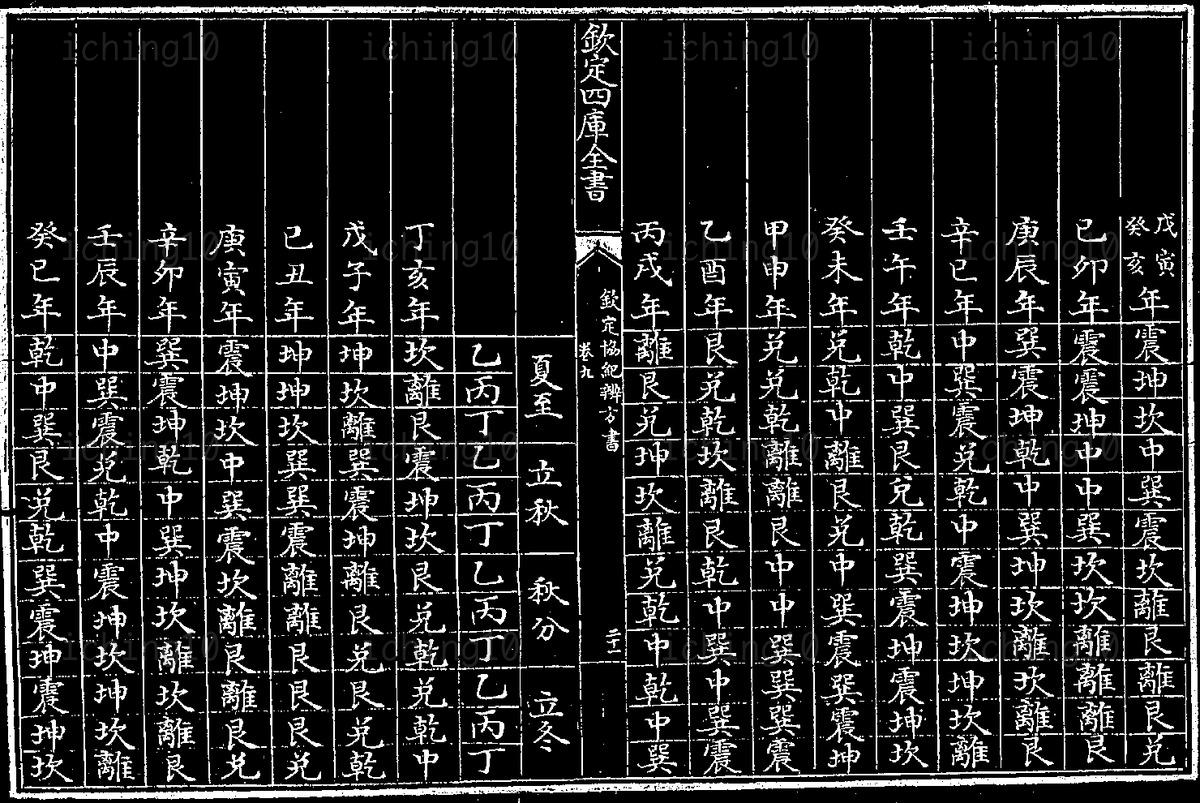 戊寅
癸亥
年震坤坎中巽震坎離艮離艮兌
己卯年震震坤中中巽坎坎離離離艮
庚辰年巽震坤乾中巽坤坎離坎離艮
辛巳年中巽震兌乾中震坤坎坤坎離
壬午年乾中巽艮兌乾巽震坤震坤坎
癸未年兌乾中離艮兌中巽震巽震坤
甲申年兌兌乾離離艮中中巽巽巽震
乙酉年艮兌乾坎離艮乾中巽中巽震
丙戌年離艮兌坤坎離兌乾中乾中巽
欽定四庫全書
欽定協紀辨方書
卷九
夏至 立秋 秋分 立冬
乙丙丁乙丙丁乙丙丁乙丙丁
丁亥年坎離艮震坤坎艮兌乾兌乾中
戊子年坤坎離巽震坤離艮兌艮兌乾
己丑年坤坤坎巽巽震離離艮艮艮兌
庚寅年震坤坎中巽震坎離艮離艮兌
辛卯年巽震坤乾中巽坤坎離坎離艮
壬辰年中巽震兌乾中震坤坎坤坎離
癸巳年乾中巽艮兌乾巽震坤震坤坎
iching10